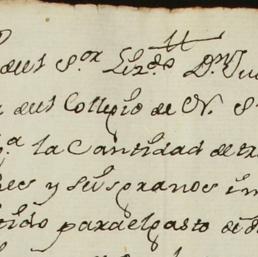 del S.or Liz.do D.n Ju
del Collegio de N. S
la Cantidad de tre
y seis granos im
tido para el gasto de